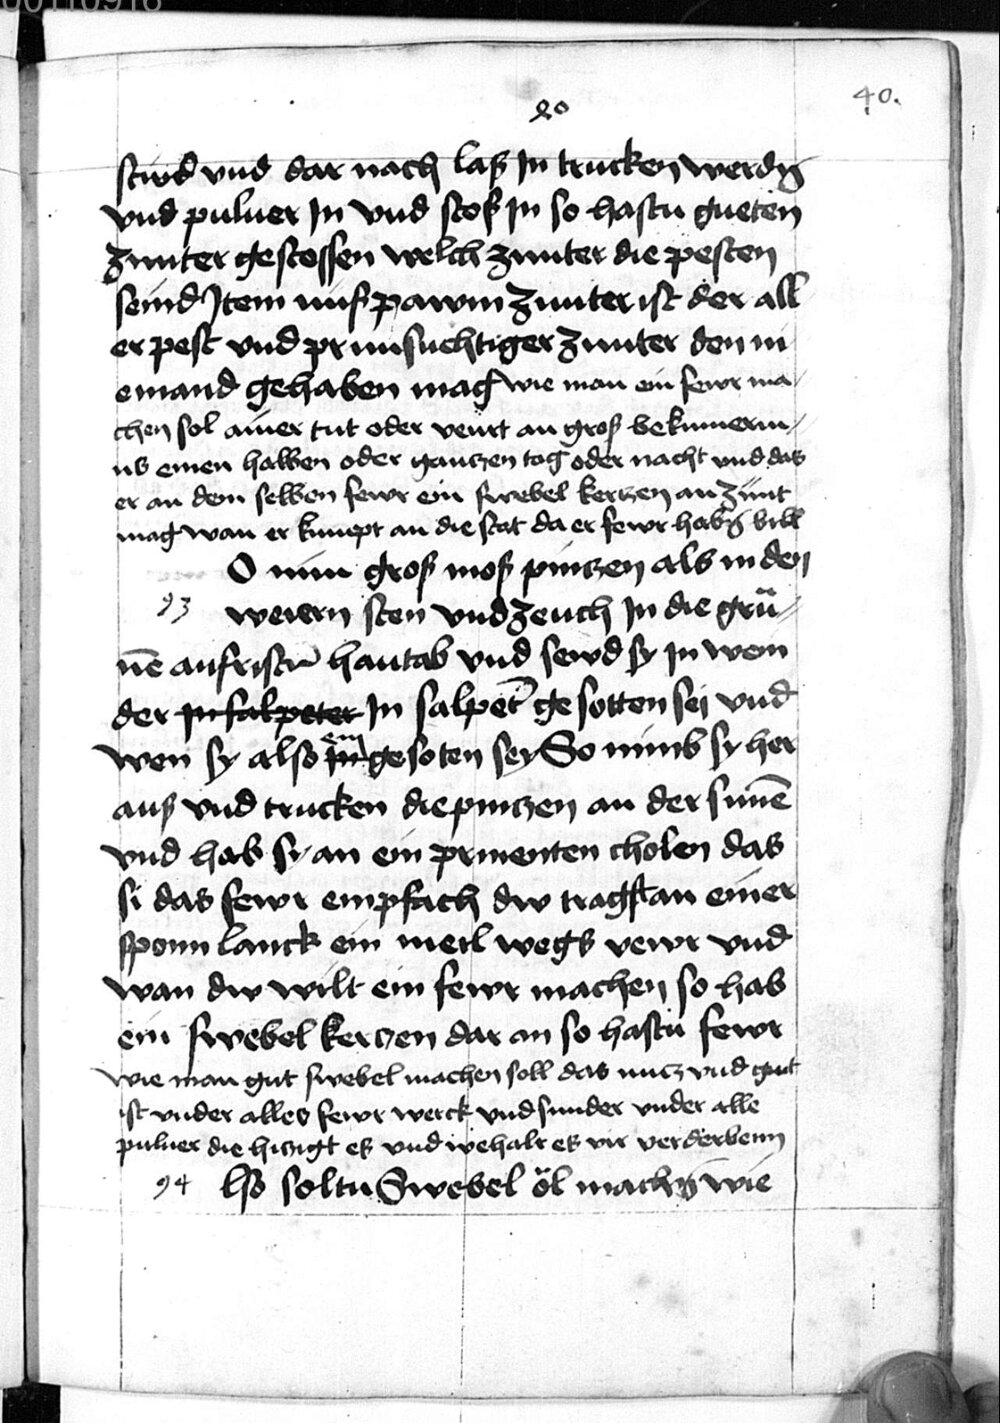 00110918
40.
40
stund vnd dar nach laß In trucken werdn
vnd puluer In vnd stoß In so hastu gueten
zunter gestossen welch zunter die pesten
seind Item nuß pawm zunter ist der all
er pest vnd prunsuchtiger zunter den ni
emand gehaben mag wie man ein fewr ma
chen sol ainer tut oder veurt an groß bekumerm
us einen halben oder gantzen tag oder nacht vnd das
er an dem selben fewr ein swebel kertzen an zunt
mag wan er kumpt an die stat da er fewr habn will
O nim groß moß pintzen als in den
93 weiern sten vnd zeuch In die grü
nē aüsristū haut ab vnd sewd sy In wein
der In salpeter In salpet̄ ge sotten sej vnd
wen sy also In ein gesoten sey So nimb sy her
auß vnd trucken die pintzen an der sunē
vnd hab sy an ein prinenten cholen das
si das fewr empfach dw tragst an einer
sponn lanck ein meil wegs vewr vnd
wan dw wilt ein fewr machen so hab
ein swebel kertzen dar an so hastu fewr
wie man gut swebel machen soll das nutz vnd gut
ist vnder alles fewr werck vnd sunder vnder alle
puluer die hitzigt es vnd wehalt es vir verderbenn
94 lso soltu Swebel öl machn wie